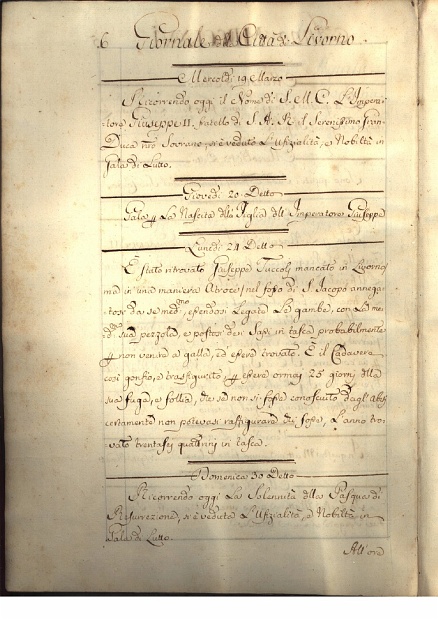 6 Giornale della Città di Livorno.
Mercoldì 19 Marzo
Ricorrendo oggi il Nome di S. M. C. L'Impera-
tore Giuseppe II. fratello di S. A. R. il Serenissimo Gran
Duca nro Sovrano, si è veduto L'Ufizialità, e Nobiltà in
Gala di Lutto.
Giovedì 20. Detto
Gala p La Nascita della Figlia dell Imperatore Giuseppe
Lunedì 24 Detto
È stato ritrovato Giuseppe Tuccoli mancato in Livorno
ma in una maniera Atroce; nel fosso di S. Jacopo annega-
tosi da se medmo, essendosi Legate Le gambe, con La me-
dma sua pezzola, e postosi dei Sassi in tasca probabilmente
p non venire a galla, ed essere trovato. È il Cadavere
così gonfio, e trasfigurito, p essere ormai 25 giorni della
sua fuga, e follia, che se non si fosse conosciuto dagl'abiti
certamente non potevasi raffigurare chi fosse, L'anno tro-
vato trentasei quattrini in tasca.
Domenica 30 Detto
Ricorrendo oggi La Solennità della Pasqua di
Resurrezione, si è veduta L'Ufizialità, e Nobiltà in
Gala di Lutto.
All'ore